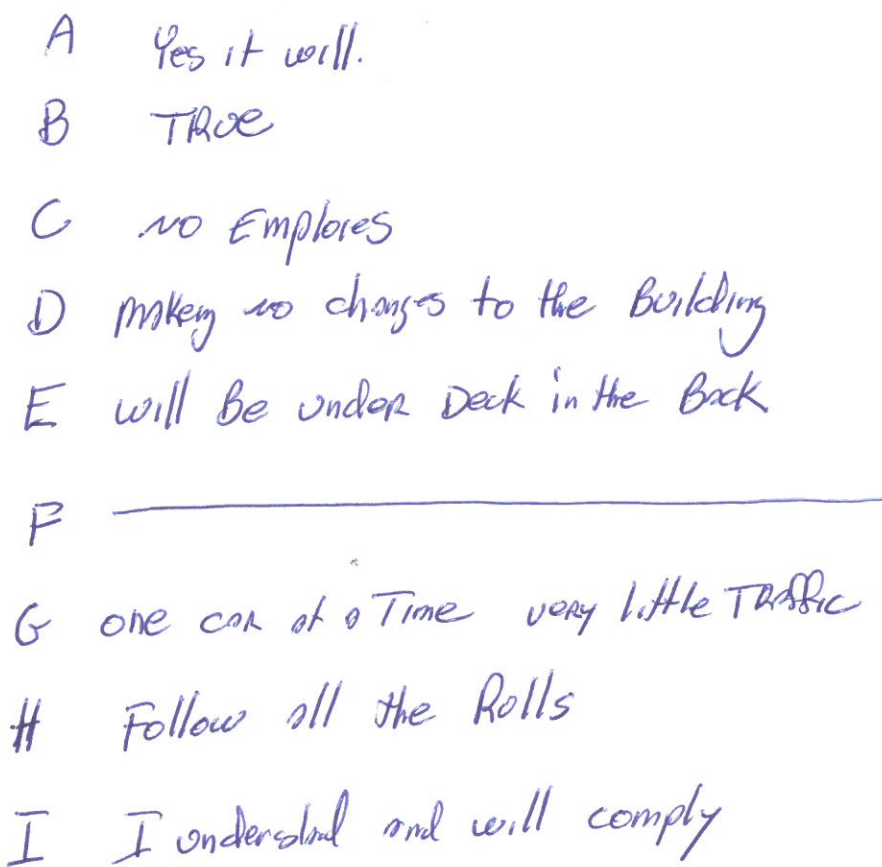 A Yes it will.
B TRUE
C no Emploies
D makeing no changes to the Building
E will Be under Deck in the Back
F
G one car at a Time very little Traffic
H Follow all the Rolls
I I understand and will comply